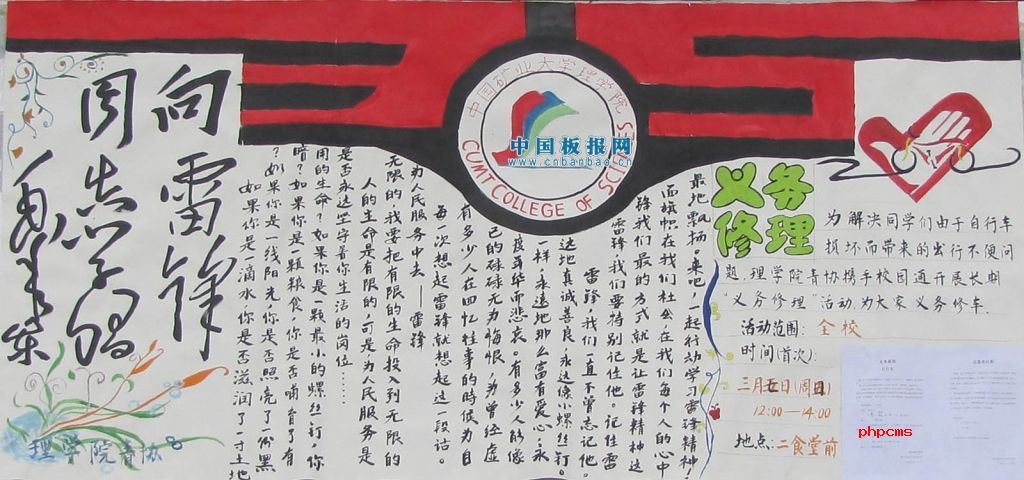 向雷锋
同志学习
毛泽东
理学院青协
中国矿业大学理学院
CUMT COLLEGE OF SCIENCES
中国板报网
www.cnbanbao.cn
如果你是一滴水,你是否滋润了一寸土地
?如果你是一线阳光,你是否照亮了一份黑
暗?如果你是一颗粮食,你是否哺育了有
用的生命?如果你是一颗最小的螺丝钉,你
是否永远坚守着你生活的岗位……
人的生命是有限的,可是,为人民服务是
无限的,我要把有限的生命投入到无限的
为人民服务中去——雷锋
每一次想起雷锋就想起这一段话。
有多少人在回忆往事的时候为自
己的碌碌无为悔恨,为曾经虚
度年华而悲哀。有多少人能像
一样,永远地那么富有爱心,永
远地真诚善良,永远像小螺丝钉。
雷锋,我们一直不曾忘记他。
雷锋,我们要特别记住他。记住雷
锋我们最的方式就是让雷锋精神这
面旗帜在我们社会,在我们每个人的心中
最地飘扬。来吧,一起行动学习雷锋精神!
义务
修理
为解决同学们由于自行车
损坏而带来的出行不便问
题,理学院青协携手校园通开展长期
"义务修理"活动,为大家义务修车.
活动范围:全校
时间(首次):
三月五日(周日)
12:00—14:00
地点:二食堂前
phpcms